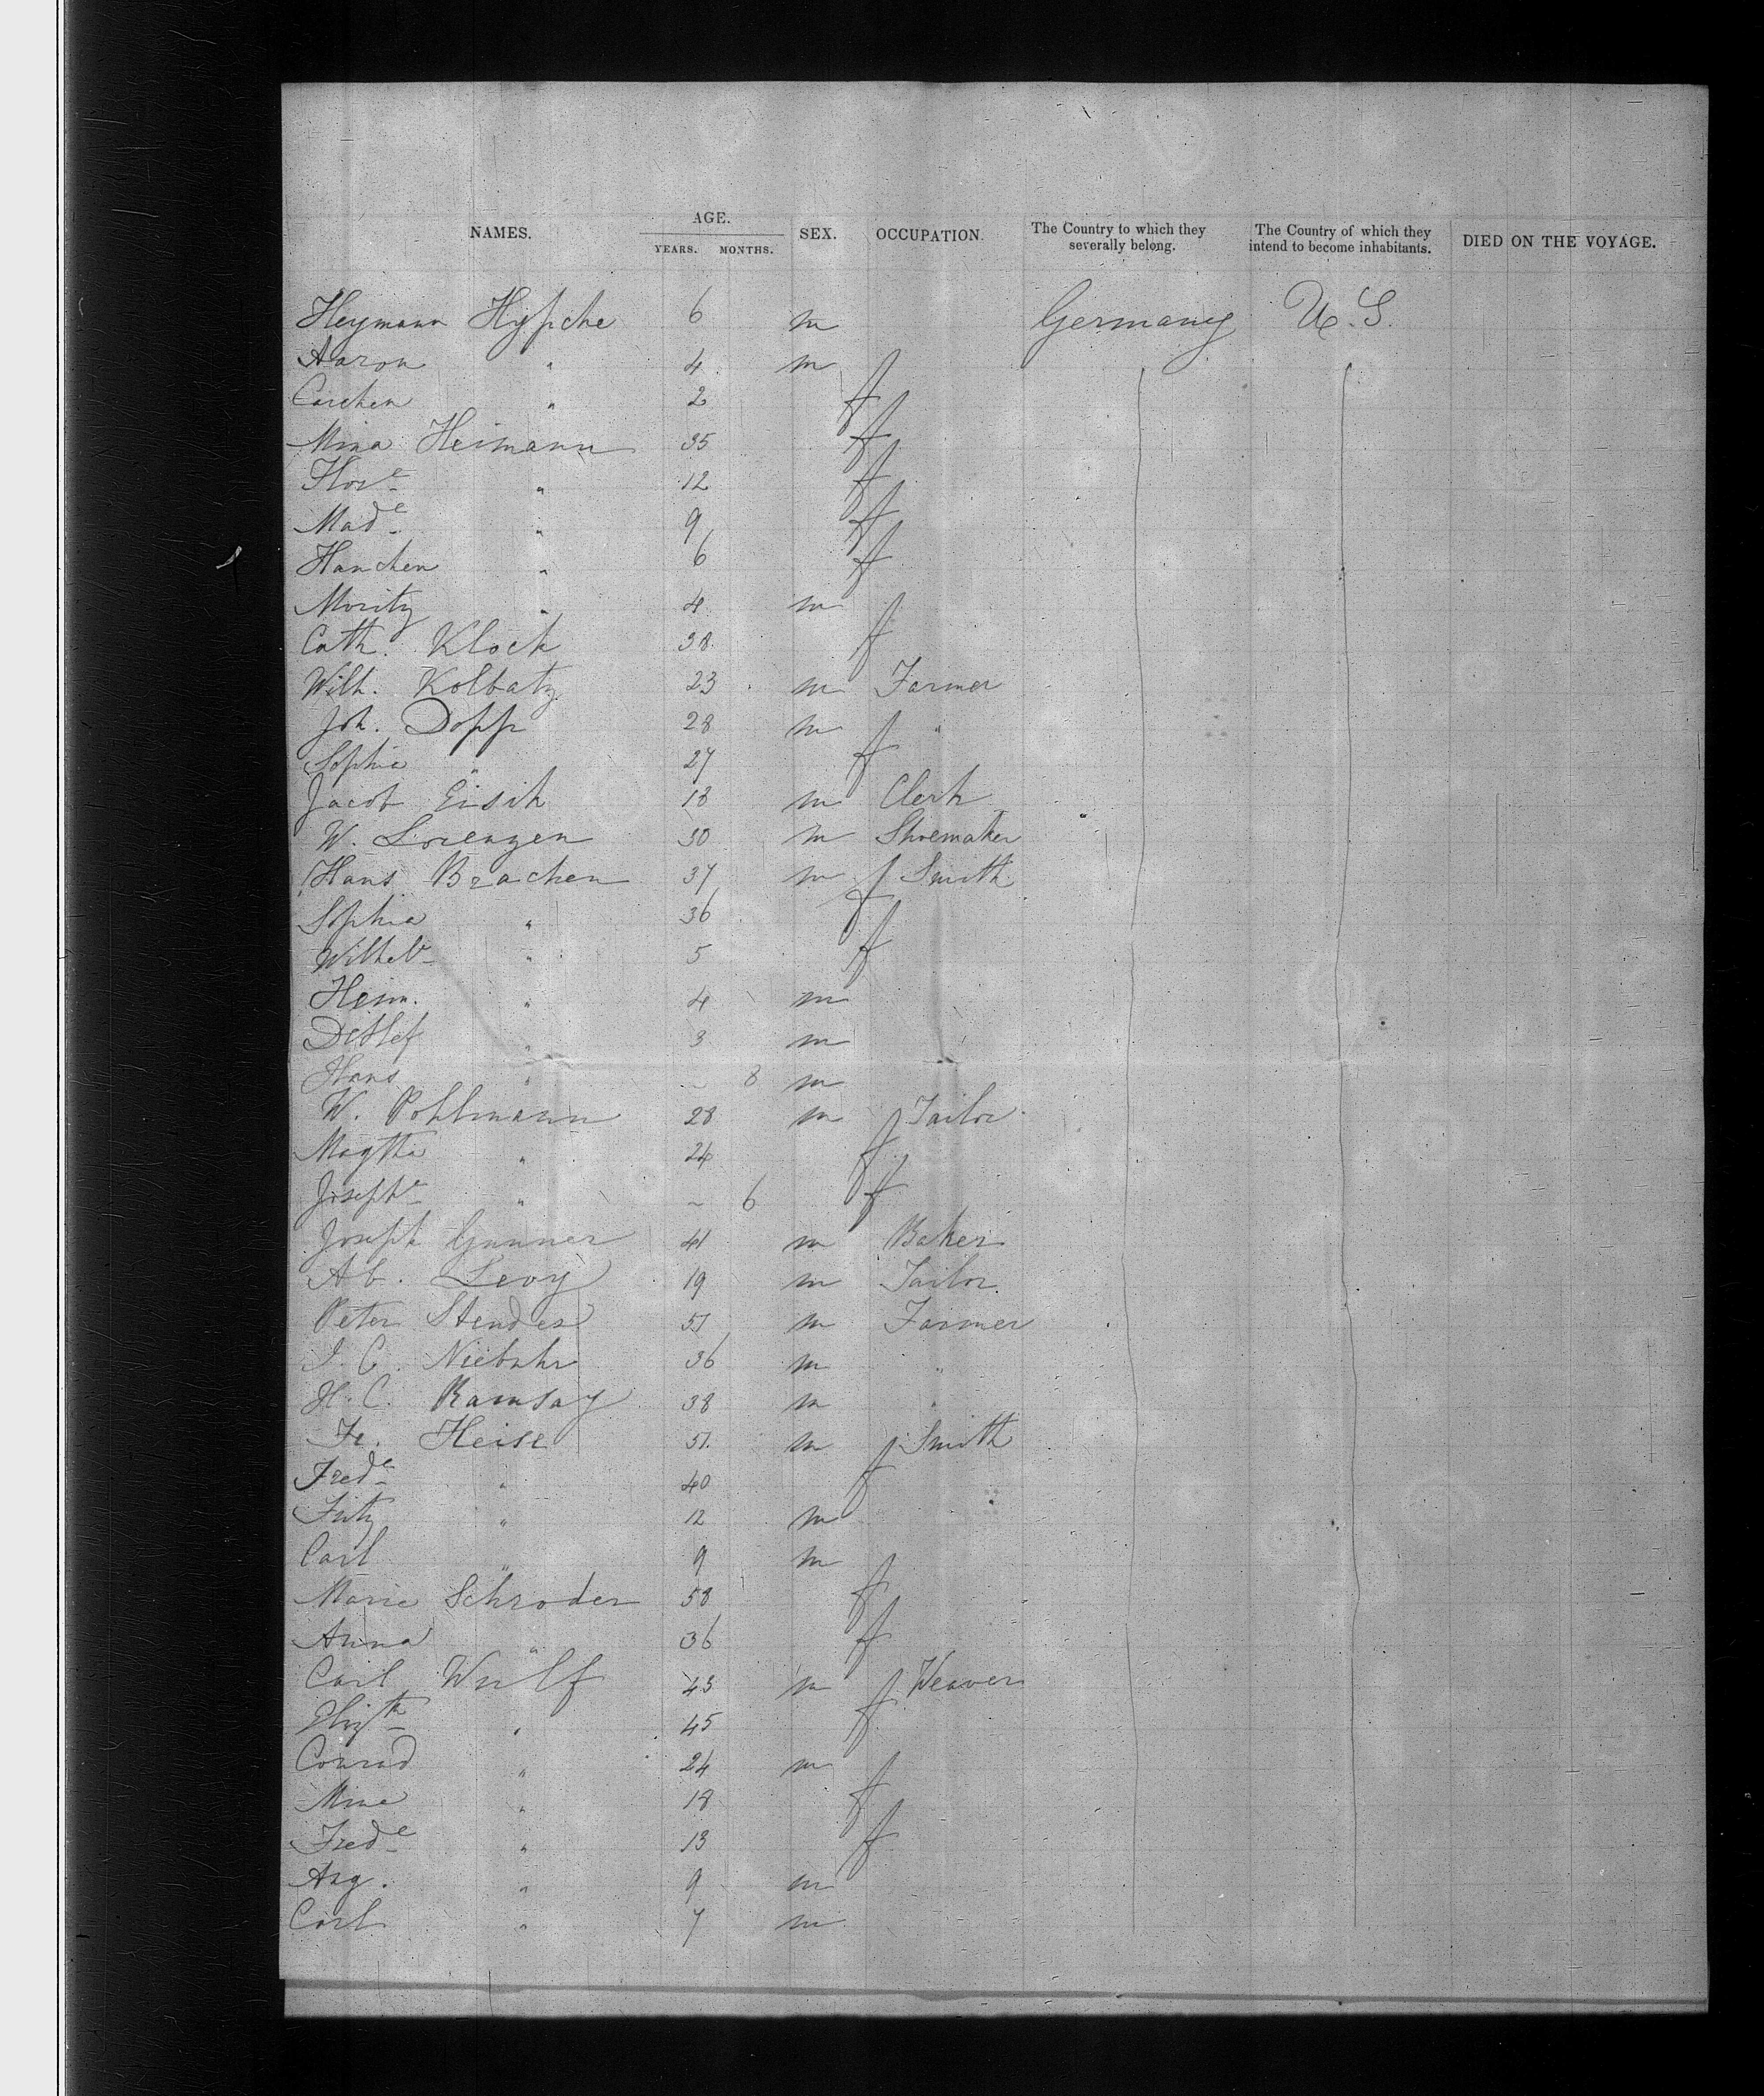 NAMES. AGE. SEX. OCCUPATION. The Country to which they severally belong. The Country of which they intend to become inhabitants. DIED ON THE VOYAGE.
YEARS. MONTHS.
Heymann Hypche 6 m Germany U.S.
Aaron " 4 m
Carchen " 2 f
Mina Heimann 35 f
Flore " 12 f
Made " 9 f
Hanchen " 6 f
Moritz " 4 m
Cath. Klock 38 f
Wilh. Kolbatz 23 m Farmer
Joh. Dopp 28 m "
Sophia " 27 f
Jacob Eisik 18 m Clerk
W. Lorenzen 30 m Shoemaker
Hans Brachen 37 m Smith
Sophia " 36 f
Wilhel " 5 f
Heinr. " 4 m
Detlef " 3 m
Hans " ~ 8 m
W. Pohlmann 28 m Tailor
Magtha " 24 f
Josephe " ~ 6 f
Joseph Gunner 41 m Baker
Ab. Levy 19 m Tailor
Peter Stendes 51 m Farmer
J. C. Niebuhr 36 m "
H. C. Ramsay 38 m "
Fr. Heise 51 m Smith
Frede " 40 f
Fritz " 12 m
Carl " 9 m
Marie Schroder 58 f
Anna " 36 f
Carl Wulf 43 m Weaver
Elizth " 45 f
Conrad " 24 m
Mine " 18 f
Frede " 13 f
Aug. " 9 m
Carl " 7 m